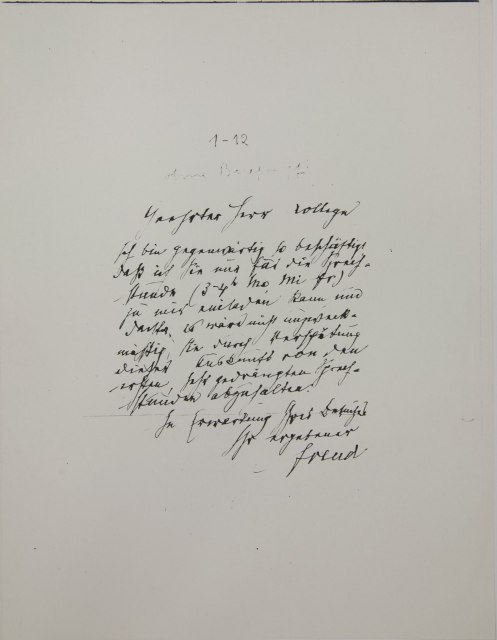 1-12
ohne Briefumschl.
Geehrter Herr College
Ich bin gegenwärtig so beschäftigt
daß ich Sie nur für die Sprech-
stunde (3-4h Mo Mi Fr)
zu mir einladen kann und
dachte, es wäre nicht unzweck-
mäßig, Sie durch Verspätung
dieser Auskunft von den
ersten, sehr gedrängten Sprech-
stunden abzuhalten.
In Erwartung Ihres Besuches
Ihr ergebener
Freud